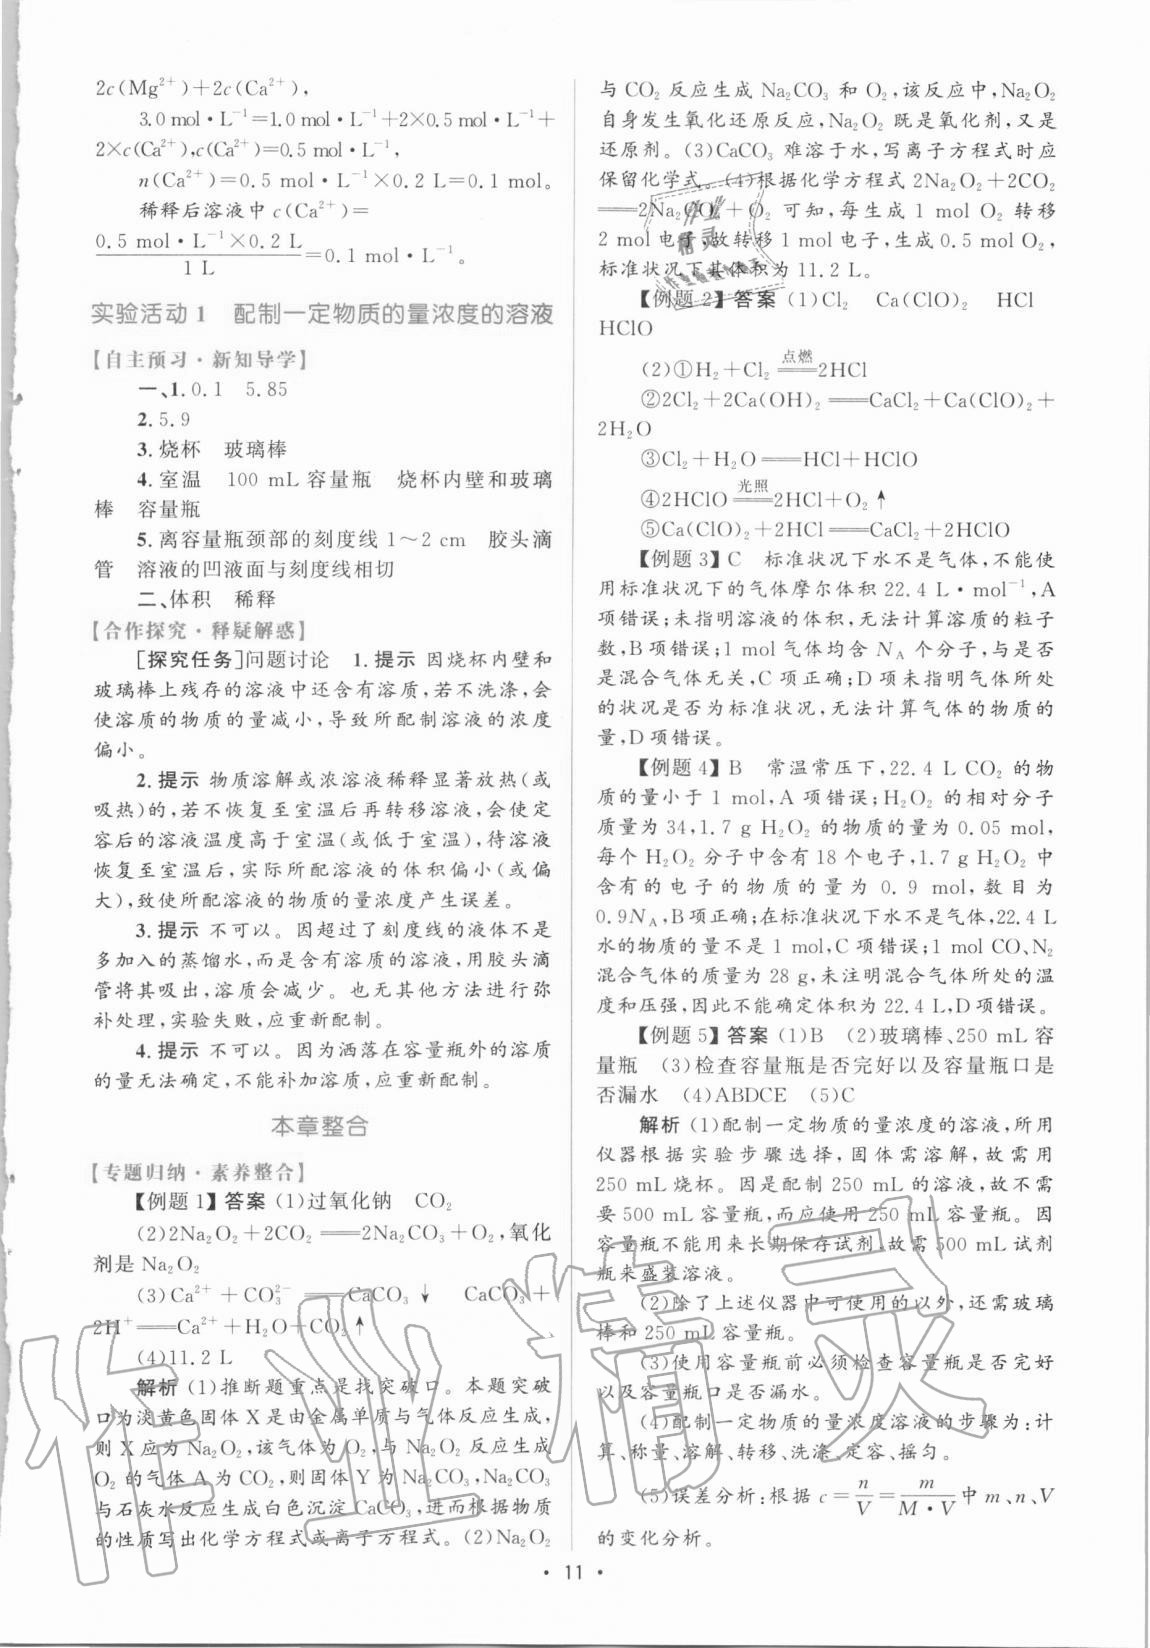 2c(Mg²⁺)+2c(Ca²⁺),
3.0 mol·L⁻¹=1.0 mol·L⁻¹+2×0.5 mol·L⁻¹+
2×c(Ca²⁺),c(Ca²⁺)=0.5 mol·L⁻¹,
n(Ca²⁺)=0.5 mol·L⁻¹×0.2 L=0.1 mol。
稀释后溶液中 c(Ca²⁺)=
0.5 mol·L⁻¹×0.2 L/1 L=0.1 mol·L⁻¹。
实验活动1 配制一定物质的量浓度的溶液
【自主预习·新知导学】
一、1.0.1 5.85
2.5.9
3.烧杯 玻璃棒
4.室温 100 mL 容量瓶 烧杯内壁和玻璃
棒 容量瓶
5.离容量瓶颈部的刻度线1～2 cm 胶头滴
管 溶液的凹液面与刻度线相切
二、体积 稀释
【合作探究·释疑解惑】
[探究任务]问题讨论 1.提示 因烧杯内壁和
玻璃棒上残存的溶液中还含有溶质,若不洗涤,会
使溶质的物质的量减小,导致所配制溶液的浓度
偏小。
2.提示 物质溶解或浓溶液稀释显著放热(或
吸热)的,若不恢复至室温后再转移溶液,会使定
容后的溶液温度高于室温(或低于室温),待溶液
恢复至室温后,实际所配溶液的体积偏小(或偏
大),致使所配溶液的物质的量浓度产生误差。
3.提示 不可以。因超过了刻度线的液体不是
多加入的蒸馏水,而是含有溶质的溶液,用胶头滴
管将其吸出,溶质会减少。也无其他方法进行弥
补处理,实验失败,应重新配制。
4.提示 不可以。因为洒落在容量瓶外的溶质
的量无法确定,不能补加溶质,应重新配制。
本章整合
【专题归纳·素养整合】
【例题1】答案 (1)过氧化钠 CO₂
(2)2Na₂O₂+2CO₂══2Na₂CO₃+O₂,氧化
剂是 Na₂O₂
(3)Ca²⁺+CO₃²⁻══CaCO₃↓ CaCO₃+
2H⁺══Ca²⁺+H₂O+CO₂↑
(4)11.2 L
解析 (1)推断题重点是找突破口。本题突破
口为淡黄色固体X是由金属单质与气体反应生成,
则X应为 Na₂O₂,该气体为 O₂,与 Na₂O₂ 反应生成
O₂ 的气体 A 为 CO₂,则固体 Y 为 Na₂CO₃,Na₂CO₃
与石灰水反应生成白色沉淀 CaCO₃,进而根据物质
的性质写出化学方程式或离子方程式。(2)Na₂O₂
与 CO₂ 反应生成 Na₂CO₃ 和 O₂,该反应中,Na₂O₂
自身发生氧化还原反应,Na₂O₂ 既是氧化剂,又是
还原剂。(3)CaCO₃ 难溶于水,写离子方程式时应
保留化学式。(4)根据化学方程式 2Na₂O₂+2CO₂
══2Na₂CO₃+O₂ 可知,每生成 1 mol O₂ 转移
2 mol 电子,故转移 1 mol 电子,生成 0.5 mol O₂,
标准状况下其体积为 11.2 L。
【例题2】答案 (1)Cl₂ Ca(ClO)₂ HCl
HClO
(2)①H₂+Cl₂ ══点燃══ 2HCl
②2Cl₂+2Ca(OH)₂══CaCl₂+Ca(ClO)₂+
2H₂O
③Cl₂+H₂O══HCl+HClO
④2HClO ══光照══ 2HCl+O₂↑
⑤Ca(ClO)₂+2HCl══CaCl₂+2HClO
【例题3】C 标准状况下水不是气体,不能使
用标准状况下的气体摩尔体积 22.4 L·mol⁻¹,A
项错误;未指明溶液的体积,无法计算溶质的粒子
数,B项错误;1 mol 气体均含 N_A 个分子,与是否
是混合气体无关,C 项正确;D 项未指明气体所处
的状况是否为标准状况,无法计算气体的物质的
量,D 项错误。
【例题4】B 常温常压下,22.4 L CO₂ 的物
质的量小于 1 mol,A 项错误;H₂O₂ 的相对分子
质量为 34,1.7 g H₂O₂ 的物质的量为 0.05 mol,
每个 H₂O₂ 分子中含有 18 个电子,1.7 g H₂O₂ 中
含有的电子的物质的量为 0.9 mol,数目为
0.9N_A,B项正确;在标准状况下水不是气体,22.4 L
水的物质的量不是 1 mol,C 项错误;1 mol CO、N₂
混合气体的质量为 28 g,未注明混合气体所处的温
度和压强,因此不能确定体积为 22.4 L,D 项错误。
【例题5】答案 (1)B (2)玻璃棒、250 mL 容
量瓶 (3)检查容量瓶是否完好以及容量瓶口是
否漏水 (4)ABDCE (5)C
解析 (1)配制一定物质的量浓度的溶液,所用
仪器根据实验步骤选择,固体需溶解,故需用
250 mL 烧杯。因是配制 250 mL 的溶液,故不需
要 500 mL 容量瓶,而应使用 250 mL 容量瓶。因
容量瓶不能用来长期保存试剂,故需 500 mL 试剂
瓶来盛装溶液。
(2)除了上述仪器中可使用的以外,还需玻璃
棒和 250 mL 容量瓶。
(3)使用容量瓶前必须检查容量瓶是否完好
以及容量瓶口是否漏水。
(4)配制一定物质的量浓度溶液的步骤为:计
算、称量、溶解、转移、洗涤、定容、摇匀。
(5)误差分析:根据 c=n/V=m/(M·V) 中 m、n、V
的变化分析。
· 11 ·
作业精灵